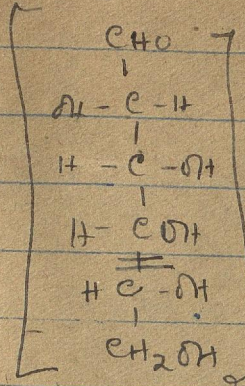 CHO
OH - C - H
H - C - OH
H - C OH
H C - OH
CH2OH